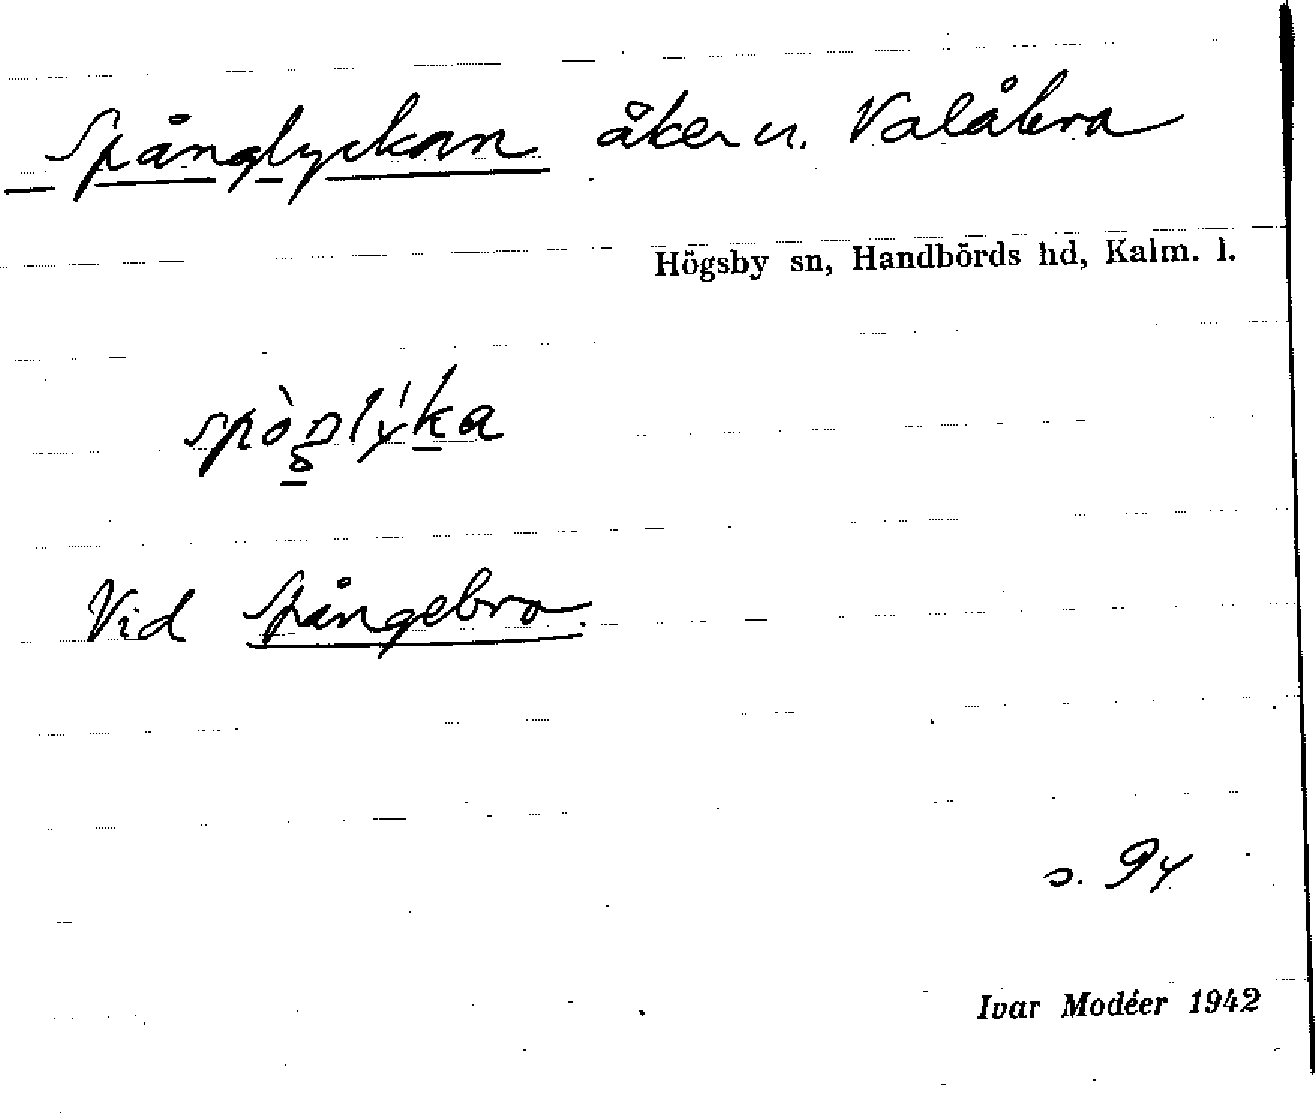 Spånglyckan åker u. Valåbra
Högsby sn, Handbörds hd, Kalm. l.
Vid Spångebro.
s. 94
Ivar Modéer 1942